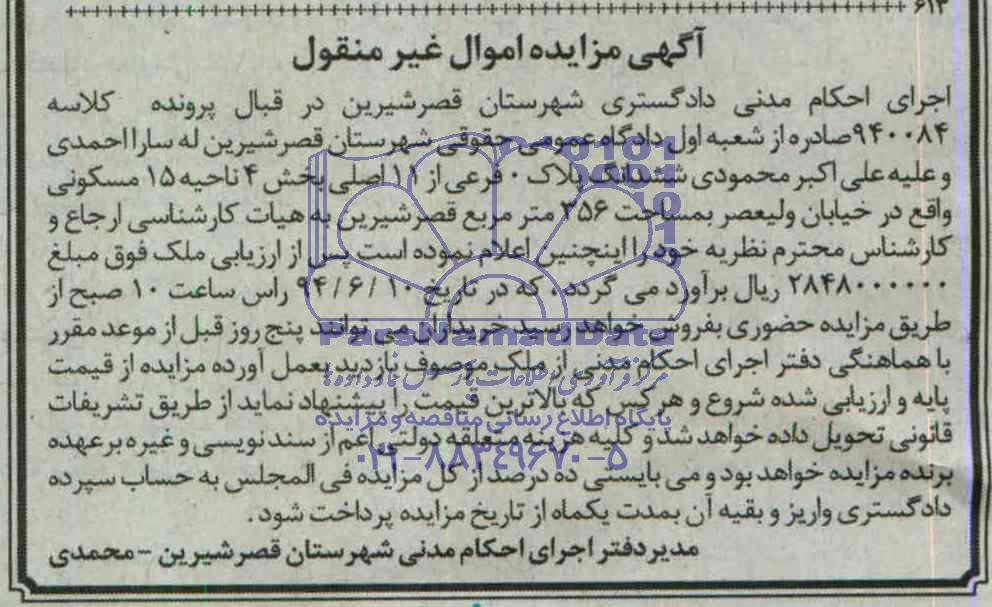 ۶۱۳
آگهی مزایده اموال غیر منقول
اجرای احکام مدنی دادگستری شهرستان قصرشیرین در قبال پرونده کلاسه
۹۴۰۰۸۴صادره از شعبه اول دادگاه عمومی حقوقی شهرستان قصرشیرین له سارا احمدی
و علیه علی اکبر محمودی ششدانگ پلاک ۰ فرعی از ۱۱ اصلی بخش ۴ ناحیه ۱۵ مسکونی
واقع در خیابان ولیعصر بمساحت ۳۵۶ متر مربع قصرشیرین به هیات کارشناسی ارجاع و
کارشناس محترم نظریه خود را اینچنین اعلام نموده است پس از ارزیابی ملک فوق مبلغ
۲۸۴۸۰۰۰۰۰۰ ریال برآورد می گردد، که در تاریخ ۱۰ / ۶ / ۹۴ راس ساعت ۱۰ صبح از
طریق مزایده حضوری بفروش خواهد رسید خریداران می توانند پنج روز قبل از موعد مقرر
ParsNamadData
با هماهنگی دفتر اجرای احکام مدنی از ملک موصوف بازدید بعمل آورده مزایده از قیمت
پایه و ارزیابی شده شروع و هر کس که بالاترین قیمت را پیشنهاد نماید از طریق تشریفات
پایگاه اطلاع رسانی مناقصه و مزایده
قانونی تحویل داده خواهد شد و کلیه هزینه متعلقه دولتی اعم از سند نویسی و غیره بر عهده
۰۲۱-۸۸۳۴۹۶۷۰-۵
برنده مزایده خواهد بود و می بایستی ده درصد از کل مزایده فی المجلس به حساب سپرده
دادگستری واریز و بقیه آن بمدت یکماه از تاریخ مزایده پرداخت شود.
مدیر دفتر اجرای احکام مدنی شهرستان قصرشیرین -محمدی